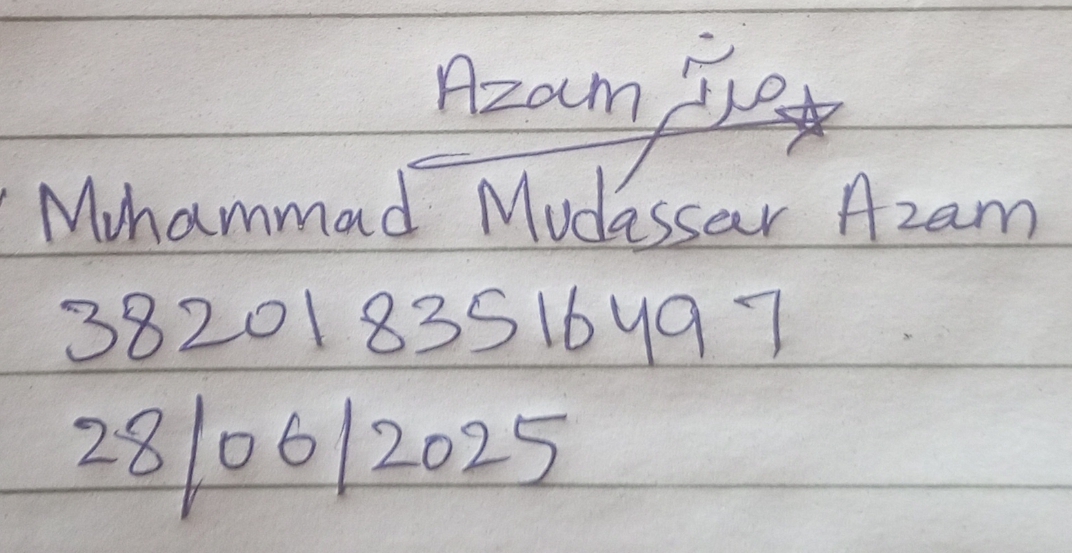 Azam
Muhammad Mudassar Azam
3820183516497
28/06/2025